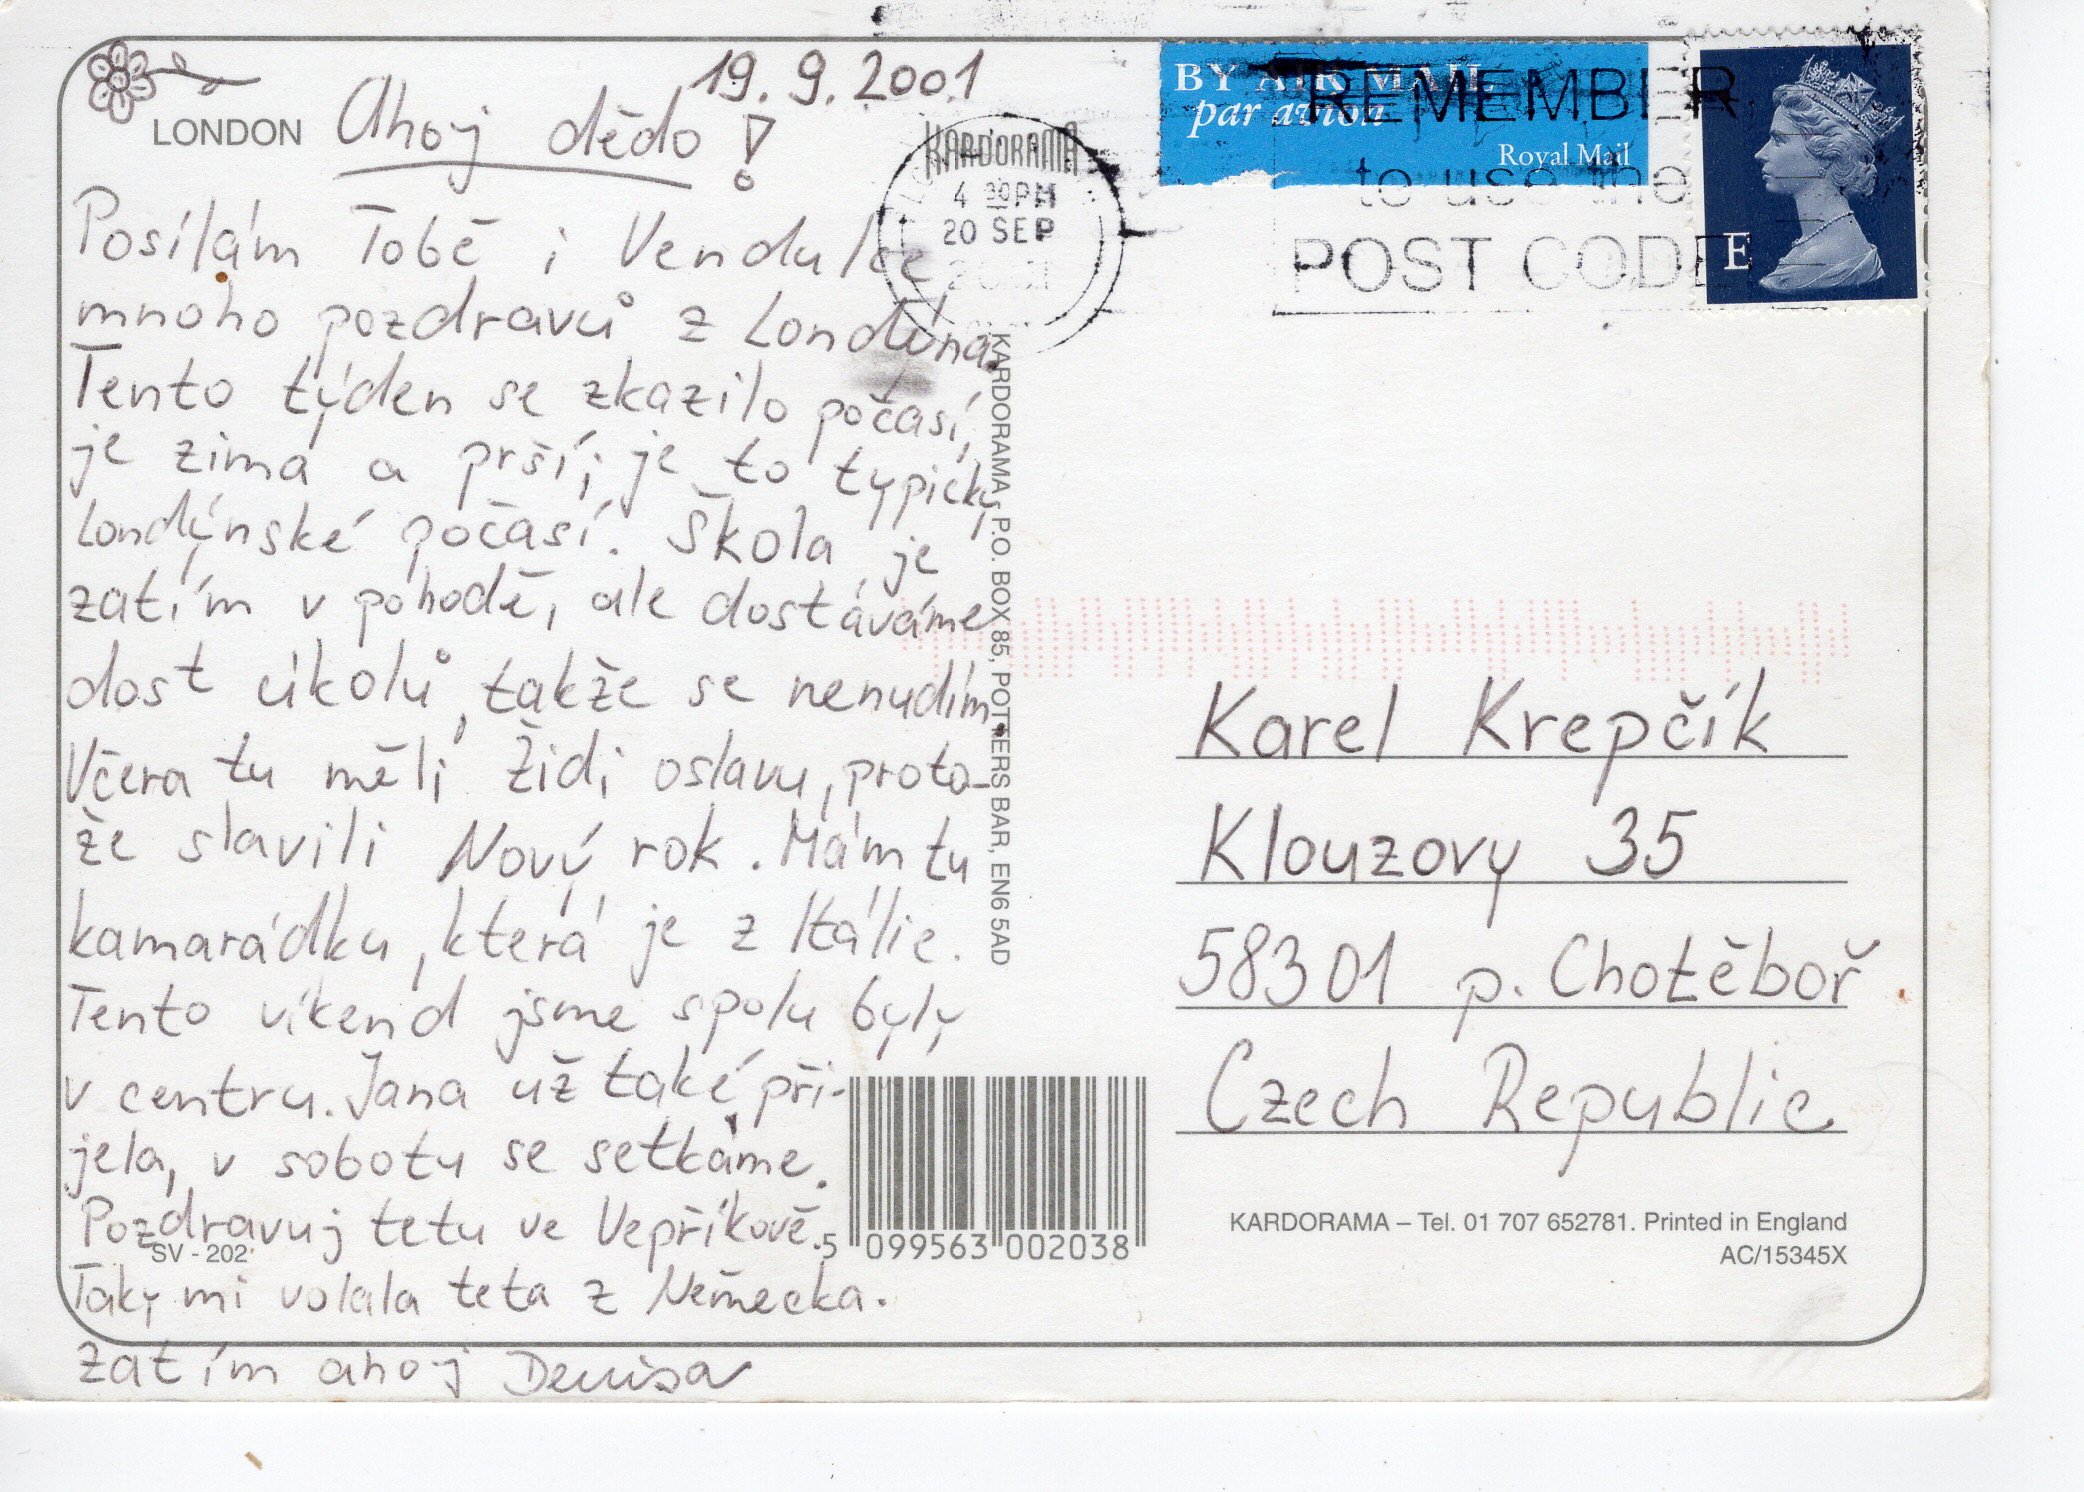 19.9.2001
LONDON
Ahoj dědo!
Posílám Tobě i Vendulce
mnoho pozdravů z Londýna.
Tento týden se zkazilo počasí,
je zima a prší, je to typicky
londýnské počasí. Škola je
zatím v pohodě, ale dostáváme
dost úkolů, takže se nenudím.
Včera tu měli Židi oslavu, proto-
že slavili Nový rok. Mám tu
kamarádku, která je z Itálie.
Tento víkend jsme spolu byly
v centru. Jana už také při-
jela, v sobotu se setkáme.
Pozdravuj tetu ve Vepříkově.
SV - 202
Taky mi volala teta z Německa.
Zatím ahoj Denisa
KARDORAMA
4 30PM
20 SEP
2001
KARDORAMA, P.O. BOX 85, POTTERS BAR, EN6 5AD
5 099563 002038
BY AIR MAIL
par avion
Royal Mail
REMEMBER
to use the
POST CODE
E
Karel Krepčík
Klouzovy 35
58301 p. Chotěboř
Czech Republic
KARDORAMA – Tel. 01 707 652781. Printed in England
AC/15345X